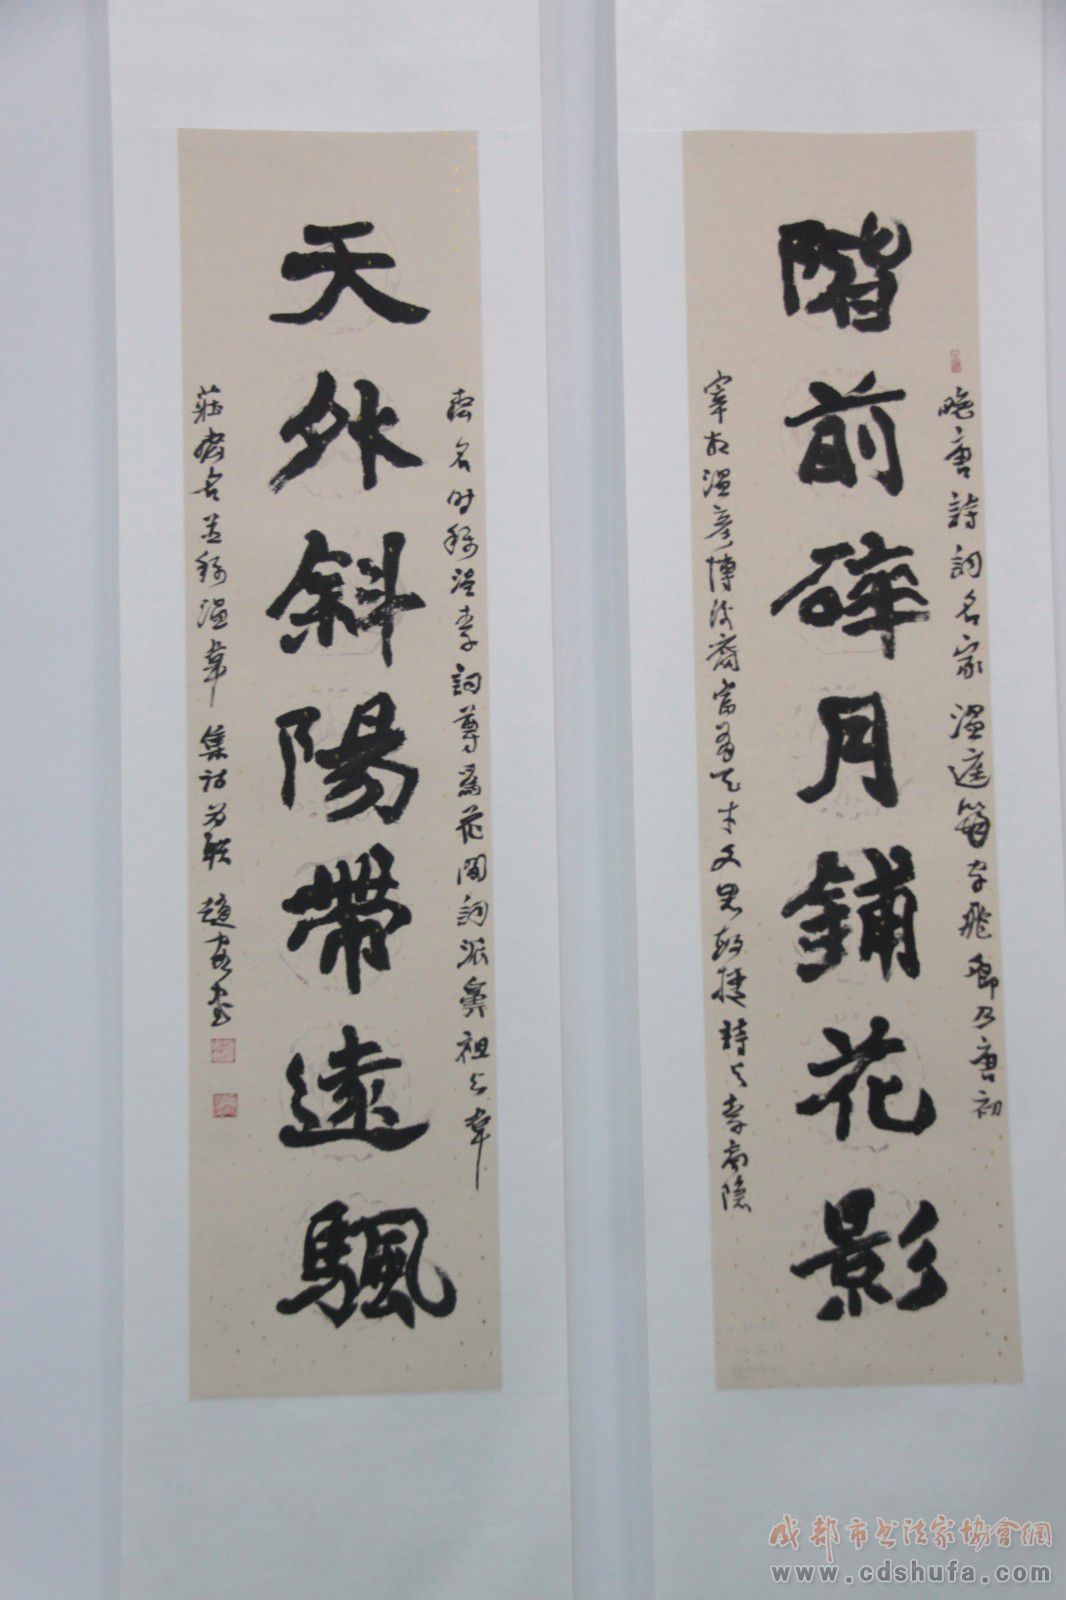 晚唐詩詞名家溫庭筠字飛卿乃唐初
階前碎月鋪花影
宰相溫彥博後裔富有天才文思敏捷詩与李商隱
齊名时稱溫李詞尊為花間詞派鼻祖与韋
天外斜陽帶遠颿
莊齊名並稱溫韋 集詩为聯 趙書
成都市书法家协會網
www.cdshufa.com